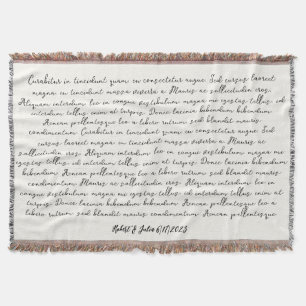 Curabitur in tincidunt quam eu consectetur augue. Sed cursus laoreet
magna non tincidunt massa viverra a. Mauris ac sollicitudin eros.
Aliquam interdum leo in congue vestibulum magna mi egestas tellus, id
interdum tellus enim at turpis. Donec lacinia bibendum bibendum.
Aenean pellentesque leo a libero rutrum sed blandit mauris
condimentum. Curabitur in tincidunt quam eu consectetur augue. Sed
cursus laoreet magna non tincidunt massa viverra a. Mauris ac
sollicitudin eros. Aliquam interdum leo in congue vestibulum magna mi
egestas tellus, id interdum tellus enim at turpis. Donec lacinia bibendum
bibendum. Aenean pellentesque leo a libero rutrum sed blandit mauris
condimentum.
interdum leo in congue vestibulum magna mi egestas tellus, id interdum tellus
enim at turpis. Donec lacinia bibendum bibendum. Aenean pellentesque leo a
libero rutrum sed blandit mauris condimentum. Aenean pellentesque
Robert & Julia 6/17/2023